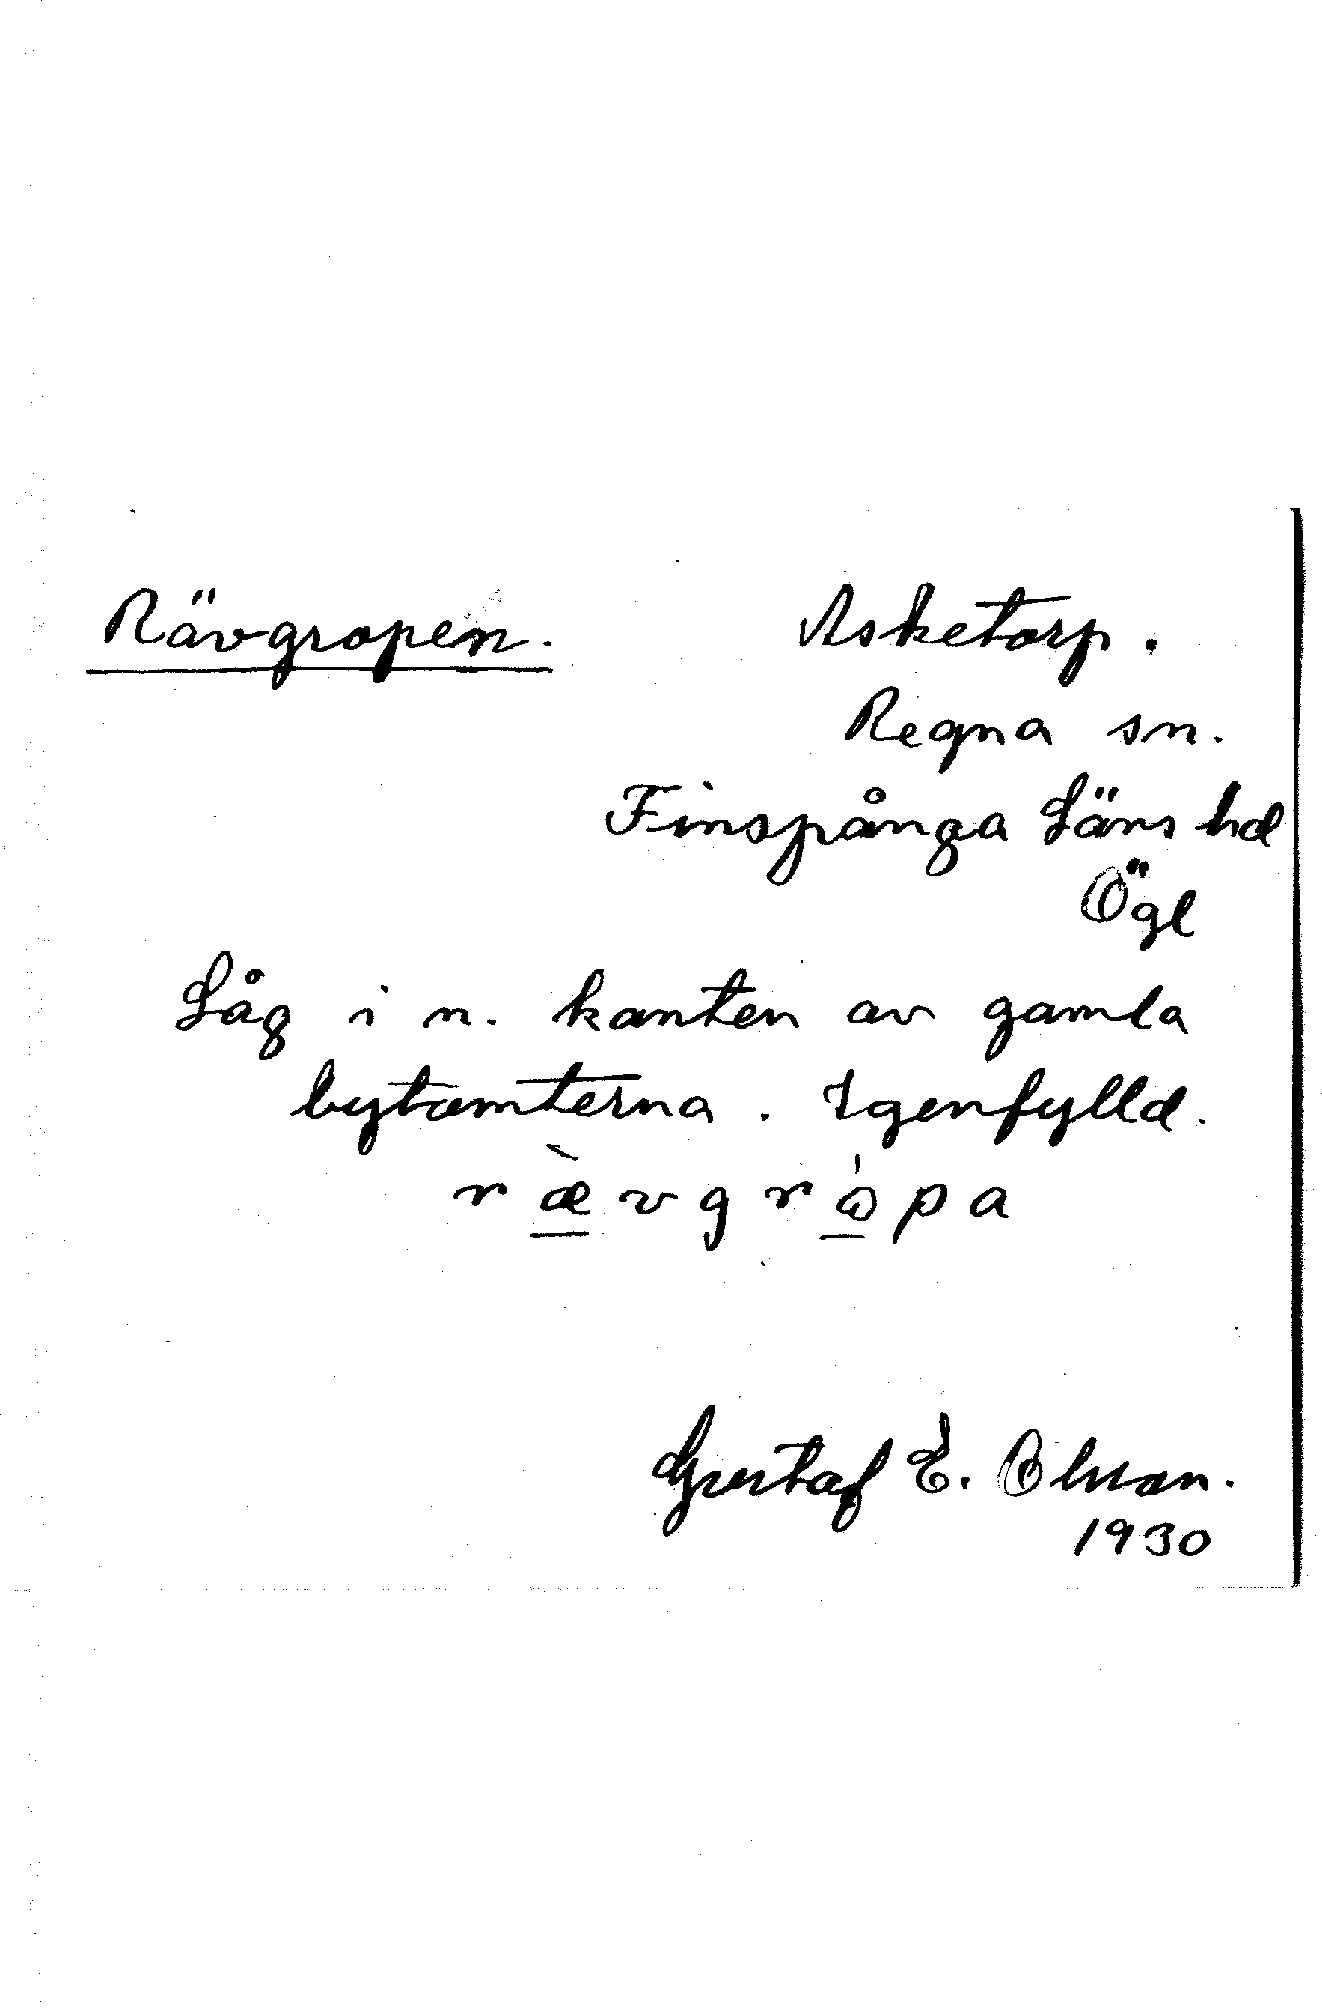 Rävgropen. Asketorp.
Regna sn.
Finspånga Läns hd
Ögl
Låg i n. kanten av gamla
bytomterna. Igenfylld.
ræ̀vgrópa
Gustaf E. Olsson.
1930